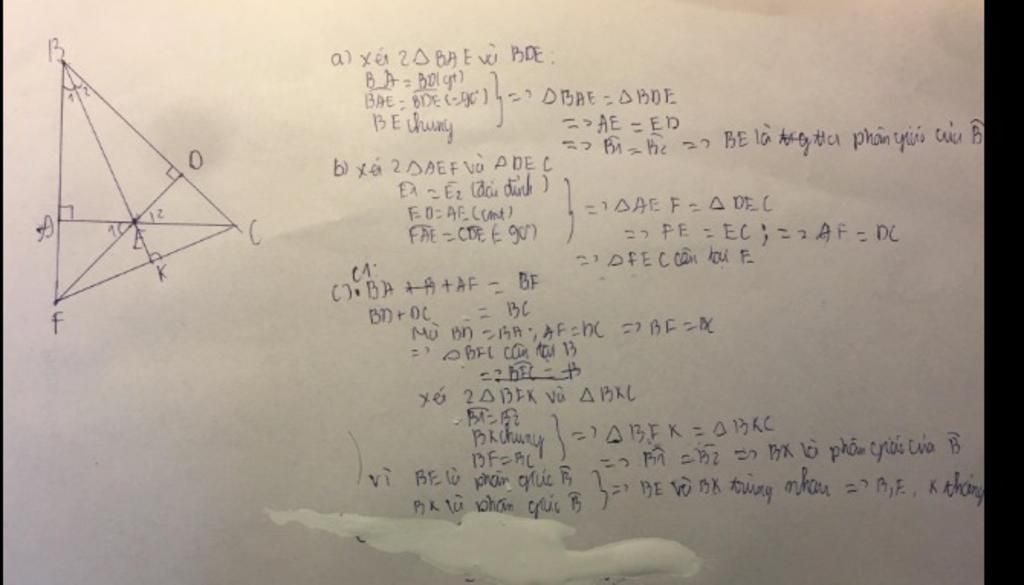 B
1 2
D
A
12
E
C
K
F
a) Xét 2 △ BAE và BDE:
BA = BD (gt)
BAE = BDE (= 90°)
BE chung
=> △BAE = △BDE
=> AE = ED
=> B1 = B2 => BE là phân giác của B
b) Xét 2 △AEF và △DEC
E1 = E2 (đối đỉnh)
ED = AE (cmt)
FAE = CDE (= 90°)
=> △AEF = △DEC
=> FE = EC ; => AF = DC
=> △FEC cân tại E
C1:
c) • BA + AF = BF
BD + DC = BC
Mà BD = BA ; AF = DC => BF = BC
=> △BFC cân tại B
Xét 2 △BFK và △BKC
B1 = B2
BK chung
BF = BC
=> △BFK = △BKC
=> B1 = B2 => BK là phân giác của B
Vì BE là phân giác B
BK là phân giác B
=> BE và BK trùng nhau => B, E, K thẳng